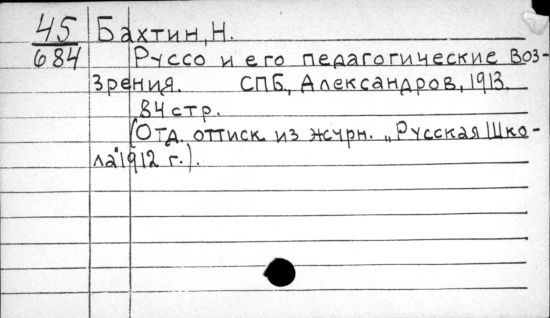 45 Бахтин, Н.
684 Руссо и его педагогические воз-
зрения. СПБ, Александров, 1913.
84 стр.
(Отд. оттиск из журн. „Русская Шко-
ла" 1912 г.).